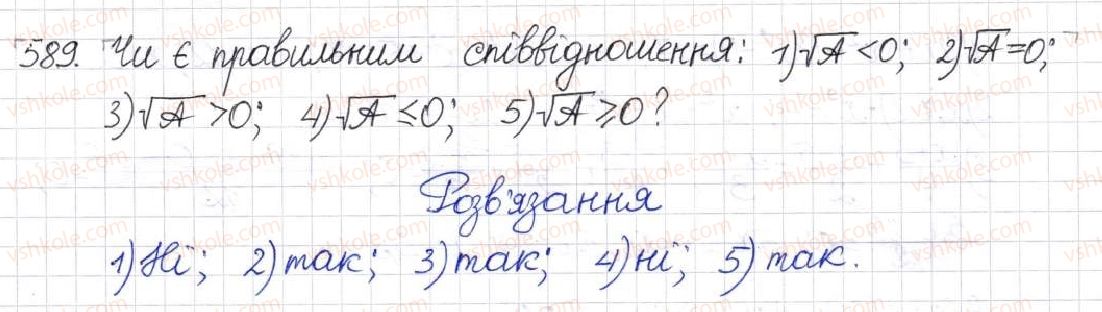 589. Чи є правильним співвідношення: 1) √A < 0; 2) √A = 0;
3) √A > 0; 4) √A ≤ 0; 5) √A ≥ 0?
Розв'язання
1) Ні; 2) так; 3) так; 4) ні; 5) так.